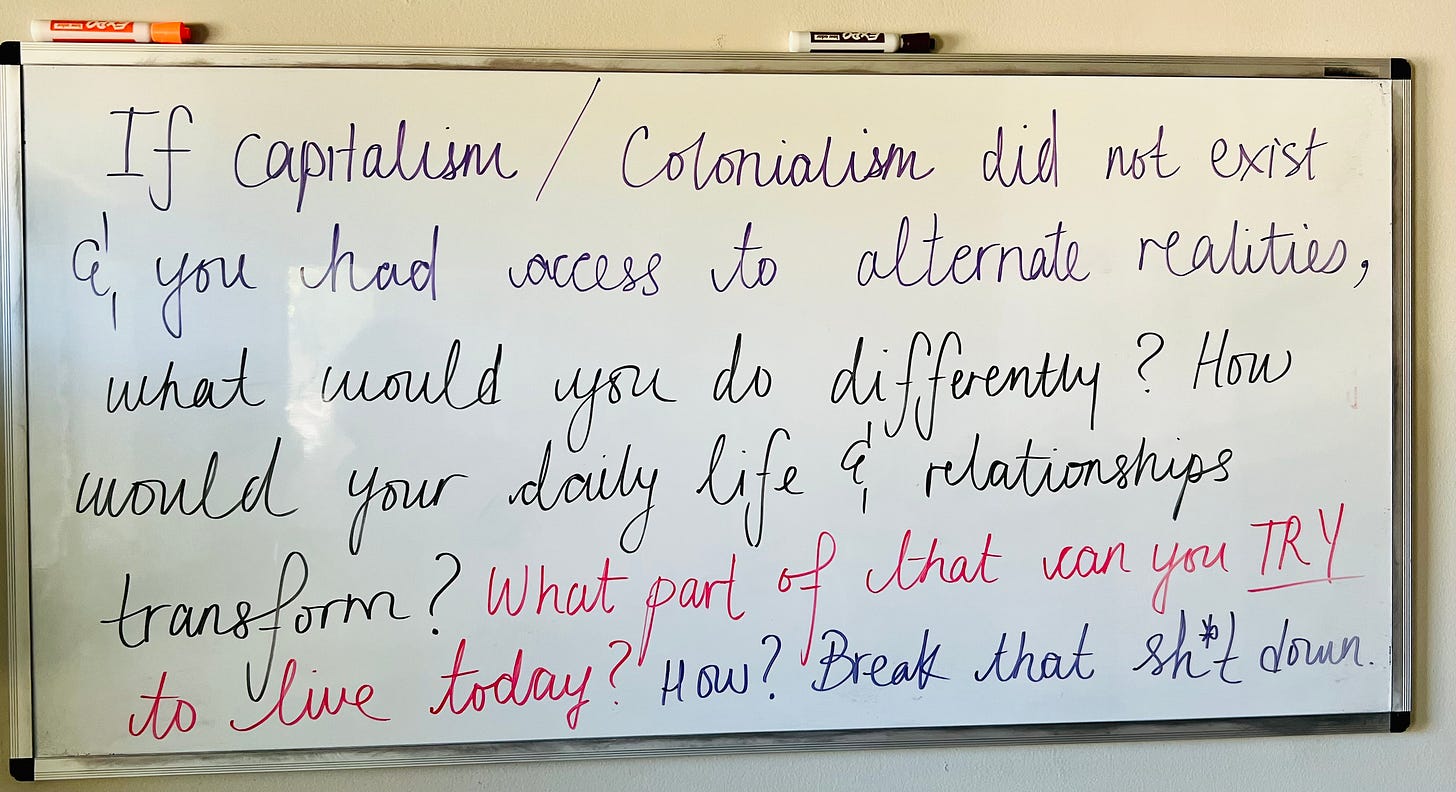 EXPO
EXPO
If capitalism / Colonialism did not exist
& you had access to alternate realities,
what would you do differently? How
would your daily life & relationships
transform? What part of that can you TRY
to live today? How? Break that sh*t down.